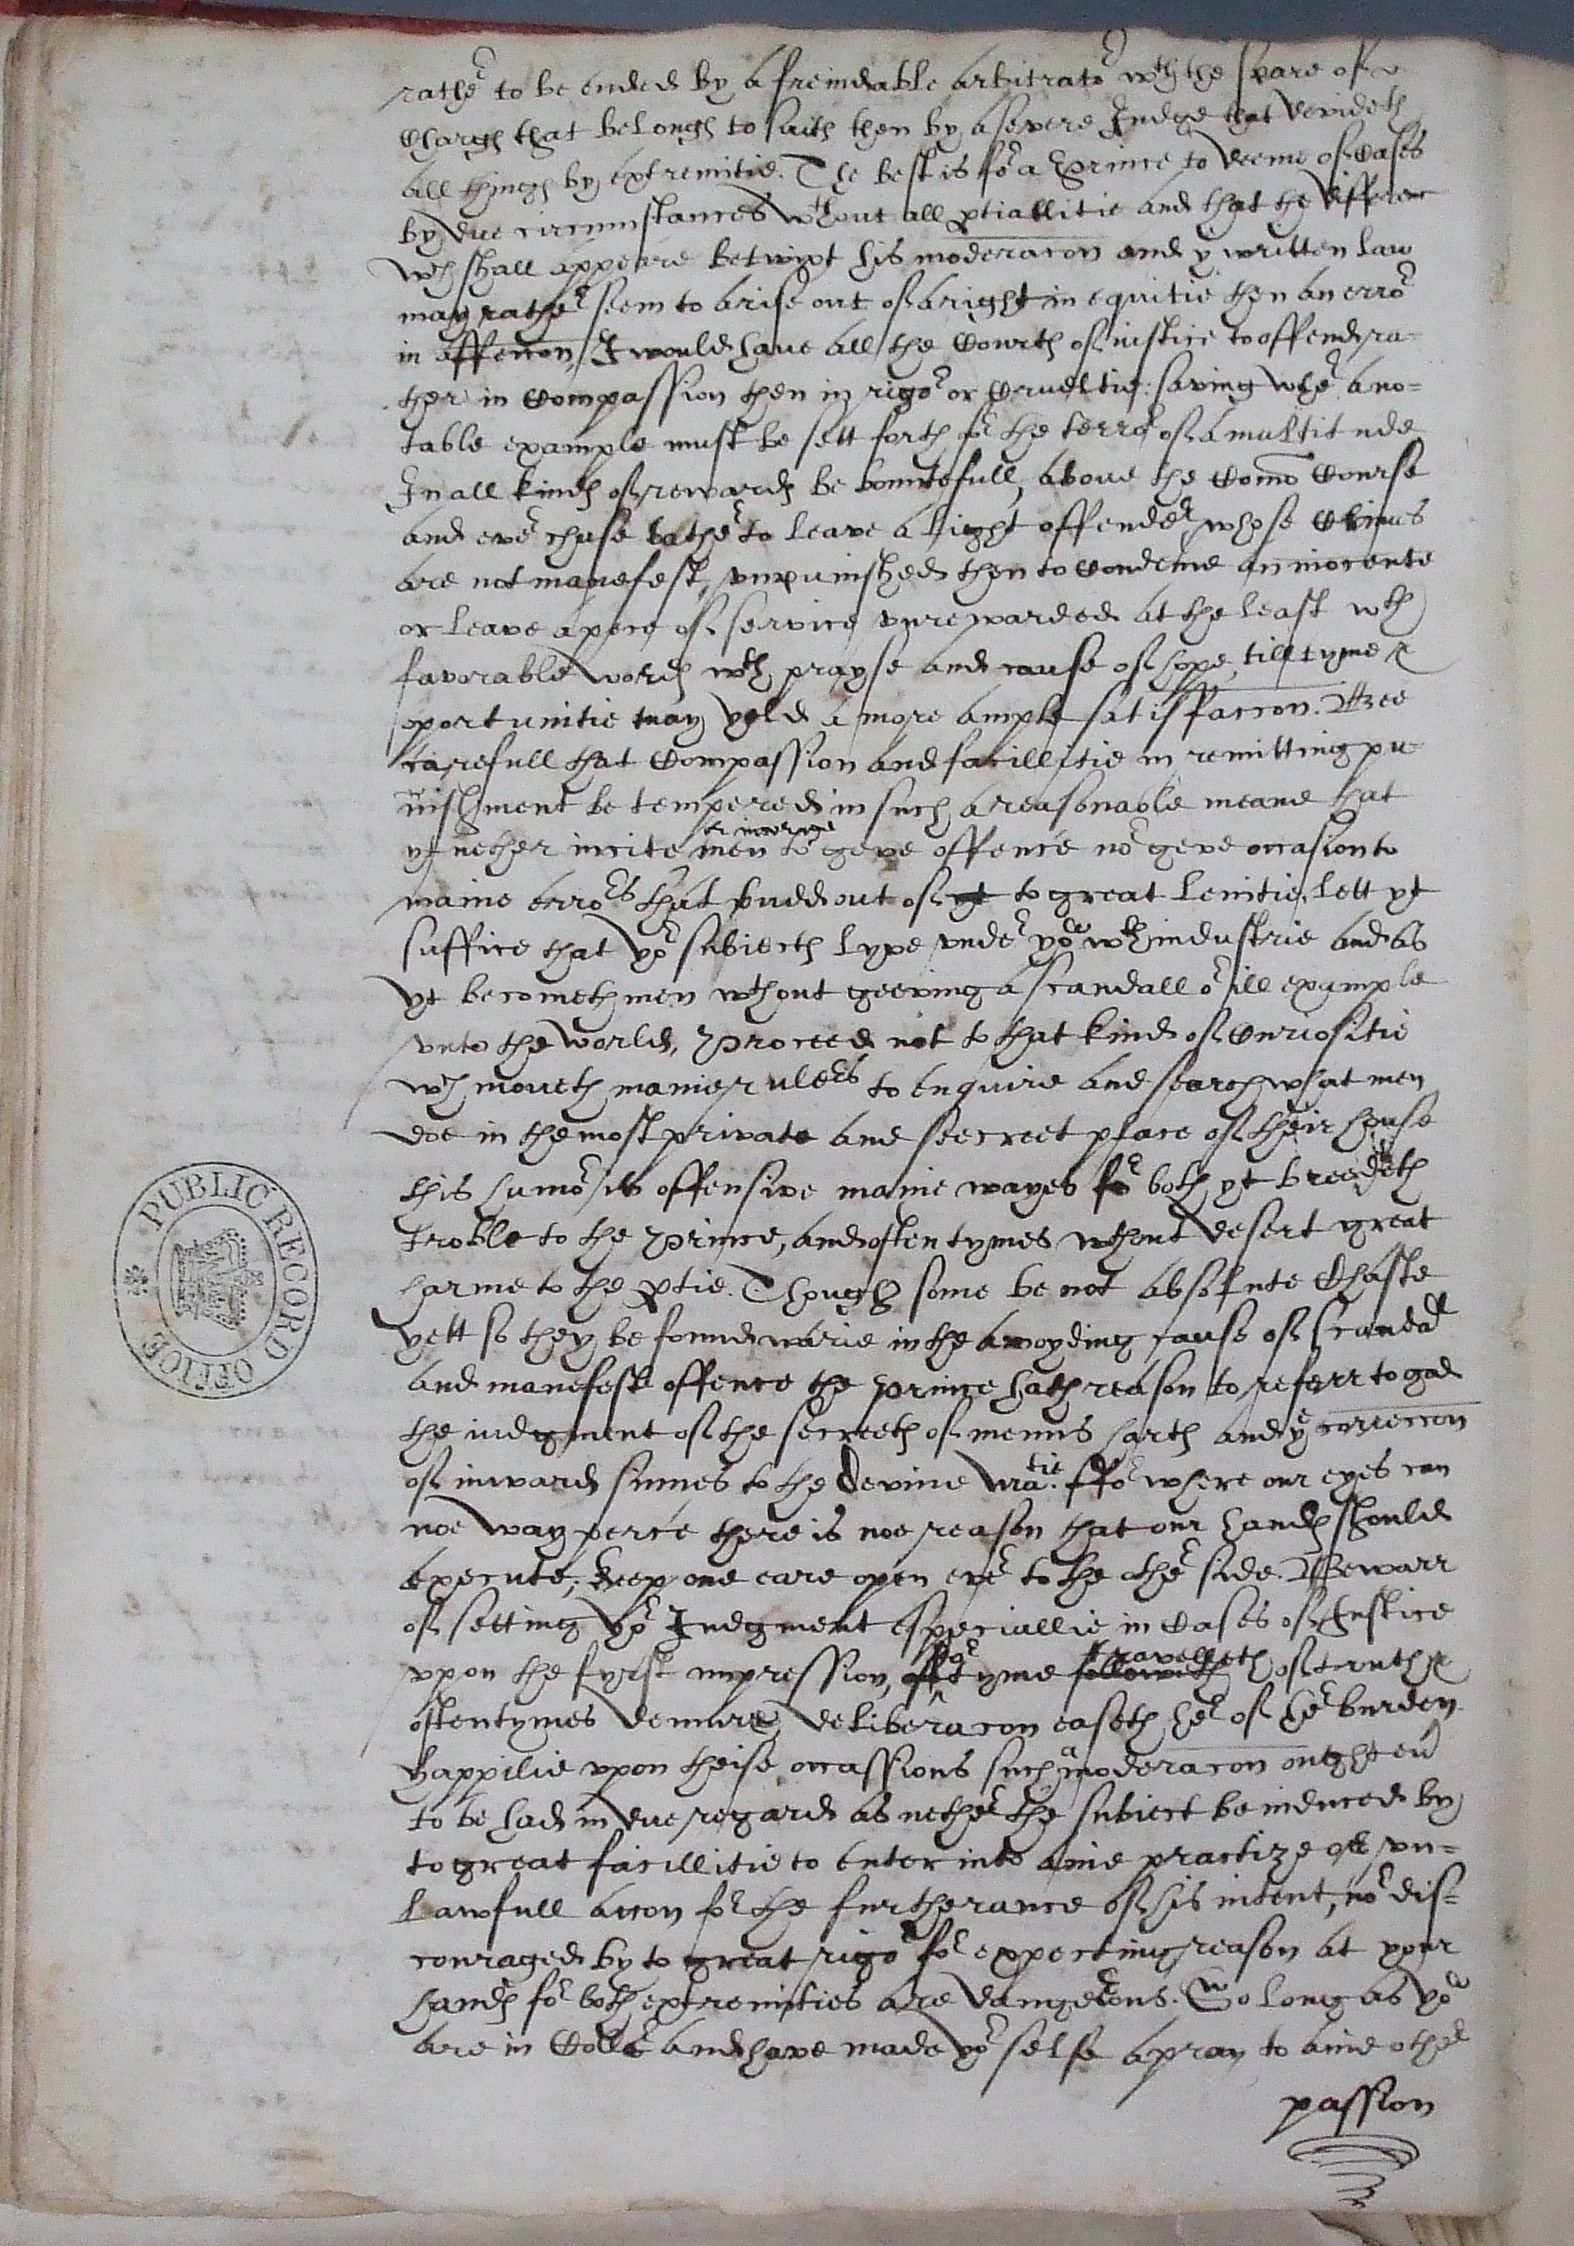 rather to be ended by a freindable arbitrator wth the spare of
Charges that belonges to suites then by a severe Judge that devideth
all thinges by extremitie. The best is for a Prince to deeme of Cases
by due circumstances wthout all ptiallitie and that the differenc
wch shall appeare betwixt his moderacon and ye written law
may rather seem to arise out of a right in equitie then an error
in affeccon, I would have all the Courtes of iustice to offend ra-
ther in Compassion then in rigor or Crueltie: saving wher a no-
table example must be sett forth for the terror of a multitude
In all kindes of rewardes be bountefull, above the Comon Course
and ever chuse rather to leave a light offender whose Crimes
are not manefest, vnpunished then to Condeme an inocente
or leave a pece of service vnrewarded at the least wth
favorable wordes wth prayse and cause of hope, till tyme &
oportunitie may yeld a more ample satisfaccon. Bee
carefull that Compassion and facillitie in remitting pu-
nishment be tempered in such a reasonable meane that
yt nether incite men or incorage to geve offence nor geve occasion to
manie errors that budd out of yt to great lenitie, lett yt
suffice that yor subiectes lyve vnder you wth industrie and as
yt becometh men wthout geeving a scandall or ill example
vnto the world, Proceed not to that kind of Curiositie
wch moveth manie rulers to enquire and search what men
doe in the most private and seecreet place of their house
this humor is offensive manie wayes for both yt breedeth
troble to the Prince, and often tymes wthout desert great
harme to the ptie. Though some be not absolute Chaste
yett so they be found warie in the avoyding cause of scandal
and manefest offence the prince hath reason to referr to god
the iudgment of the secreetes of menns hartes and ye correccon
of inward sinnes to the Devine Matie. ffor where our eyes can
noe way perce there is noe reason that our handes should
execute; keep one eare open ever to the other side. Bewarr
of setting yor Judgment especiallie in Cases of Justice
vpon the fyrst impression, for tyme followeth travelleth of truth &
oftentymes demure deliberacon easeth her of her burden
happilie vpon theise occassions such a moderacon ought ever
to be had in due regard as nether the subiect be induced by
to great facillitie to enter into anie practize of vn-
lawfull accon for the furtherance of his intent, nor dis-
couraged by to great rigor for expecting reason at your
handes for both extremities are dangerous. So long as you
are in Coller and have made yor selfe a pray to anie other
passion
PUBLIC RECORD OFFICE